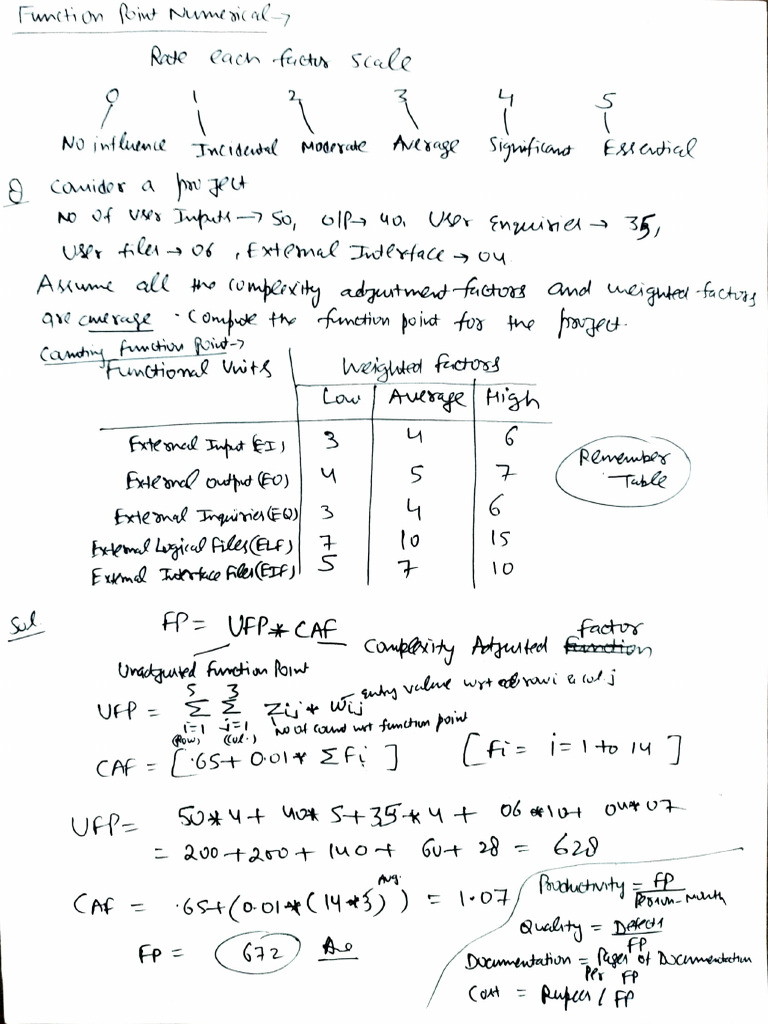 Function Point Numerical →
Rate each factor scale
0 1 2 3 4 5
No influence Incidental Moderate Average Significant Essential
Q Consider a project
No of User Inputs → 50, o/p → 40, User Enquiries → 35,
User files → 06, External Interface → 04
Assume all the complexity adjustment factors and weighted factors
are average. Compute the function point for the project.
Counting function Point →
Functional Units Weighted factors
Low Average High
External Input (EI) 3 4 6
External Output (EO) 4 5 7
External Inquiries (EQ) 3 4 6
External Logical Files (ELF) 7 10 15
External Interface Files (EIF) 5 7 10
Remember Table
Sol FP = UFP * CAF Complexity Adjusted factor
Unadjusted Function Point
UFP = 5 Σ i=1 (Row) 3 Σ j=1 (Col.) Zij * Wij entry value wrt row i & col. j
No of count wrt function point
CAF = [.65 + 0.01 * ΣFi] [Fi = i = 1 to 14]
UFP = 50*4 + 40*5 + 35*4 + 06*10 + 04*07
= 200 + 200 + 140 + 60 + 28 = 628
CAF = .65 + (0.01 * (14*3)) Avg. = 1.07
FP = 672 Ans
Productivity = FP / Person-Month
Quality = Defects / FP
Documentation = Pages of Documentation Per FP
Cost = Rupees / FP